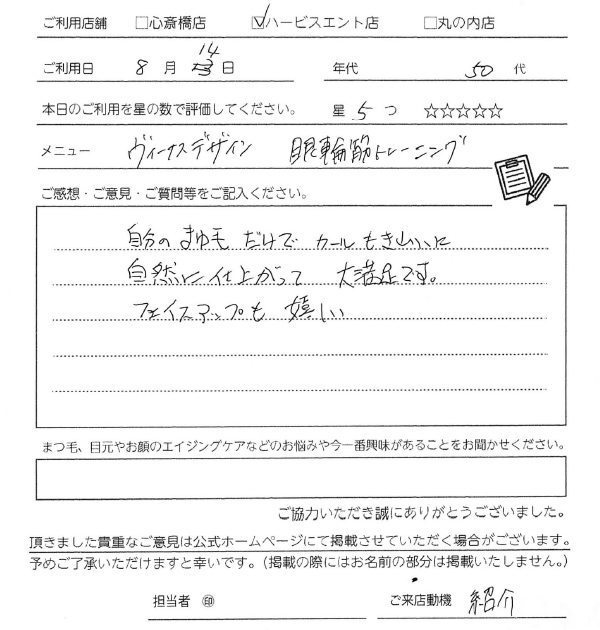 ご利用店舗 □心斎橋店 ☑ハービスエント店 □丸の内店
ご利用日 8 月 14 日 年代 50 代
本日のご利用を星の数で評価してください。 星 5 つ ☆☆☆☆☆
メニュー ヴィーナスデザイン 眼輪筋トレーニング
ご感想・ご意見・ご質問等をご記入ください。
自分のまゆ毛だけで カールもきれいに
自然に仕上がって 大満足です。
フェイスアップも 嬉しい
まつ毛、目元やお顔のエイジングケアなどのお悩みや今一番興味があることをお聞かせください。
ご協力いただき誠にありがとうございました。
頂きました貴重なご意見は公式ホームページにて掲載させていただく場合がございます。
予めご了承いただけますと幸いです。(掲載の際にはお名前の部分は掲載いたしません。)
担当者 ㊞ ご来店動機 紹介